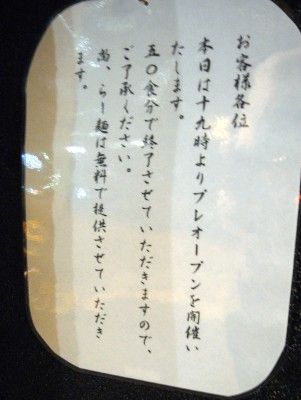 お客様各位
本日は十九時よりプレオープンを開催い
たします。
五〇食分で終了させていただきますので、
ご了承ください。
尚、らー麺は無料で提供させていただき
ます。